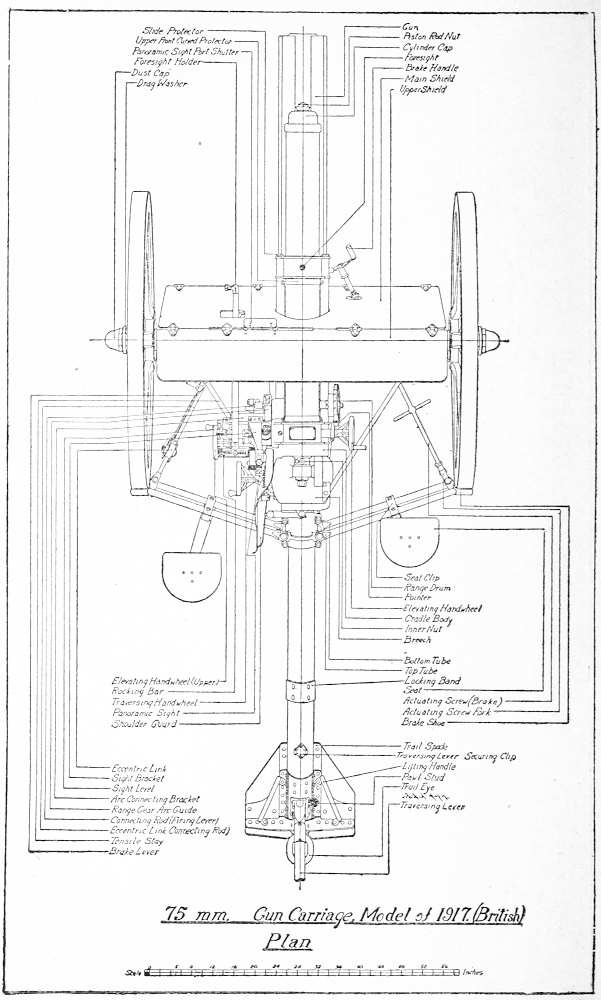 Slide Protector
Upper Front Curved Protector
Panoramic Sight Port Shutter
Foresight Holder
Dust Cap
Drag Washer
Gun
Piston Rod Nut
Cylinder Cap
Foresight
Brake Handle
Main Shield
Upper Shield
Seat Clip
Range Drum
Pointer
Elevating Handwheel
Cradle Body
Inner Nut
Breech
Bottom Tube
Top Tube
Locking Band
Seat
Actuating Screw (Brake)
Actuating Screw Fork
Brake Shoe
Elevating Handwheel (Upper)
Rocking Bar
Traversing Handwheel
Panoramic Sight
Shoulder Guard
Trail Spade
Traversing Lever Securing Clip
Lifting Handle
Pawl Stud
Trail Eye
Traversing Lever
Eccentric Link
Sight Bracket
Sight Level
Arc Connecting Bracket
Range Gear Arc Guide
Connecting Rod (Firing Lever)
Eccentric Link Connecting Rod)
Tensile Stay
Brake Lever
75 mm. Gun Carriage, Model of 1917. (British)
Plan
Scale Inches